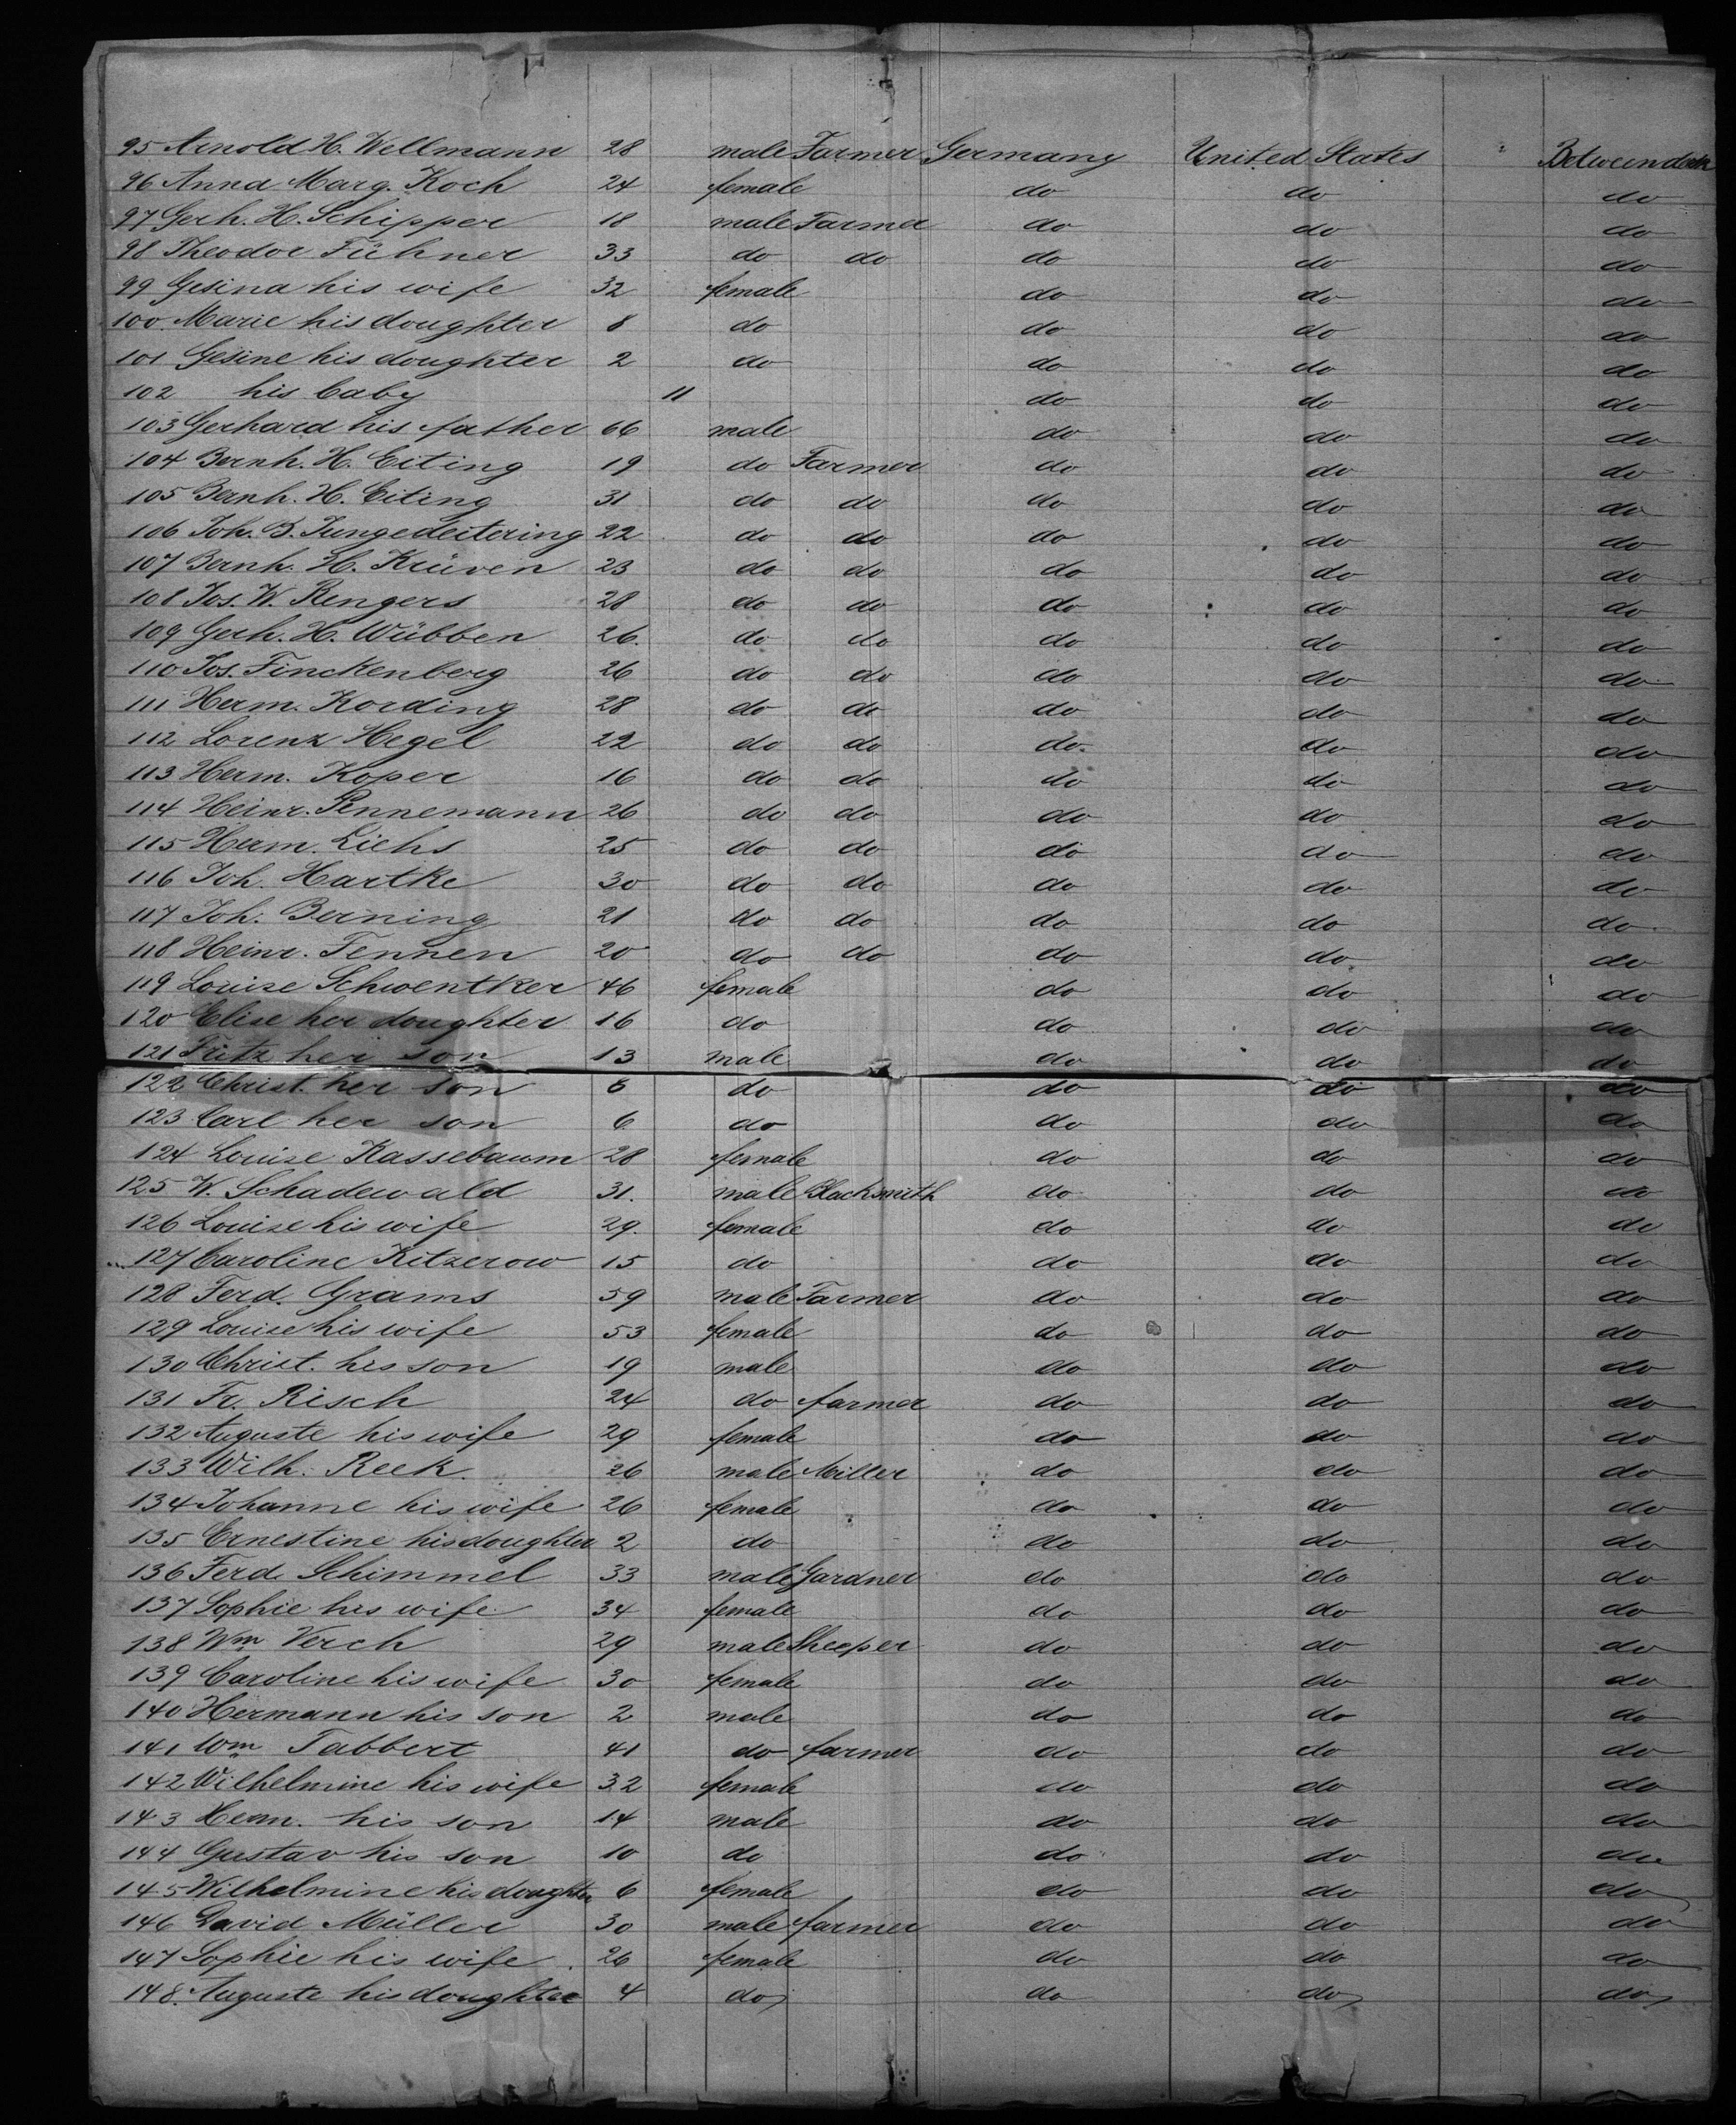 95 Arnold H. Wellmann 28 male Farmer Germany United States Betweendeck
96 Anna Marg. Koch 24 female do do do
97 Gerh. H. Schipper 18 male Farmer do do do
98 Theodor Fühner 33 do do do do do
99 Gesina his wife 32 female do do do
100 Marie his doughter 8 do do do do
101 Gesine his doughter 2 do do do do
102 his baby 11 do do do
103 Gerhard his father 66 male do do do
104 Bernh. H. Eiting 19 do Farmer do do do
105 Bernh. H. Eiting 31 do do do do do
106 Joh. B. Jungedeitering 22 do do do do do
107 Bernh. H. Krüven 23 do do do do do
108 Jos. W. Rengers 28 do do do do do
109 Gerh. H. Wübben 26. do do do do do
110 Jos. Finckenberg 26 do do do do do
111 Herm. Kording 28 do do do do do
112 Lorenz Hegel 22 do do do. do do
113 Herm. Koper 16 do do do do do
114 Heinr. Pennemann 26 do do do do do
115 Herm. Liehs 25 do do do do do
116 Joh. Hartke 30 do do do do do
117 Joh. Berning 21 do do do do do
118 Heinr. Tennen 20 do do do do do
119 Louise Schwentker 46 female do do do
120 Elise her doughter 16 do do do do
121 Fritz her son 13 male do do do
122 Christ. her son 6 do do do do
123 Carl her son 6 do do do do
124 Louise Kassebaum 28 female do do do
125 W. Schadewald 31. male Blacksmith do do do
126 Louise his wife 29. female do do do
127 Caroline Kitzerow 15 do do do do
128 Ferd. Grams 59 male Farmer do do do
129 Louise his wife 53 female do do do
130 Christ. his son 19 male do do do
131 Fr. Risch 24 do farmer do do do
132 Auguste his wife 29 female do do do
133 Wilh. Reek. 26 male Miller do do do
134 Johanne his wife 26 female do do do
135 Ernestine his doughter 2 do do do do
136 Ferd. Schimmel 33 male Gardner do do do
137 Sophie his wife 34 female do do do
138 Wm Verch 29 male Sheeper do do do
139 Caroline his wife 30 female do do do
140 Hermann his son 2 male do do do
141 Wm Tabbert 41 do farmer do do do
142 Wilhelmine his wife 32 female do do do
143 Herm. his son 14 male do do do
144 Gustav his son 10 do do do do
145 Wilhelmine his doughter 6 female do do do
146 David Müller 30 male farmer do do do
147 Sophie his wife 26 female do do do
148. Auguste his doughter 4 do do do do